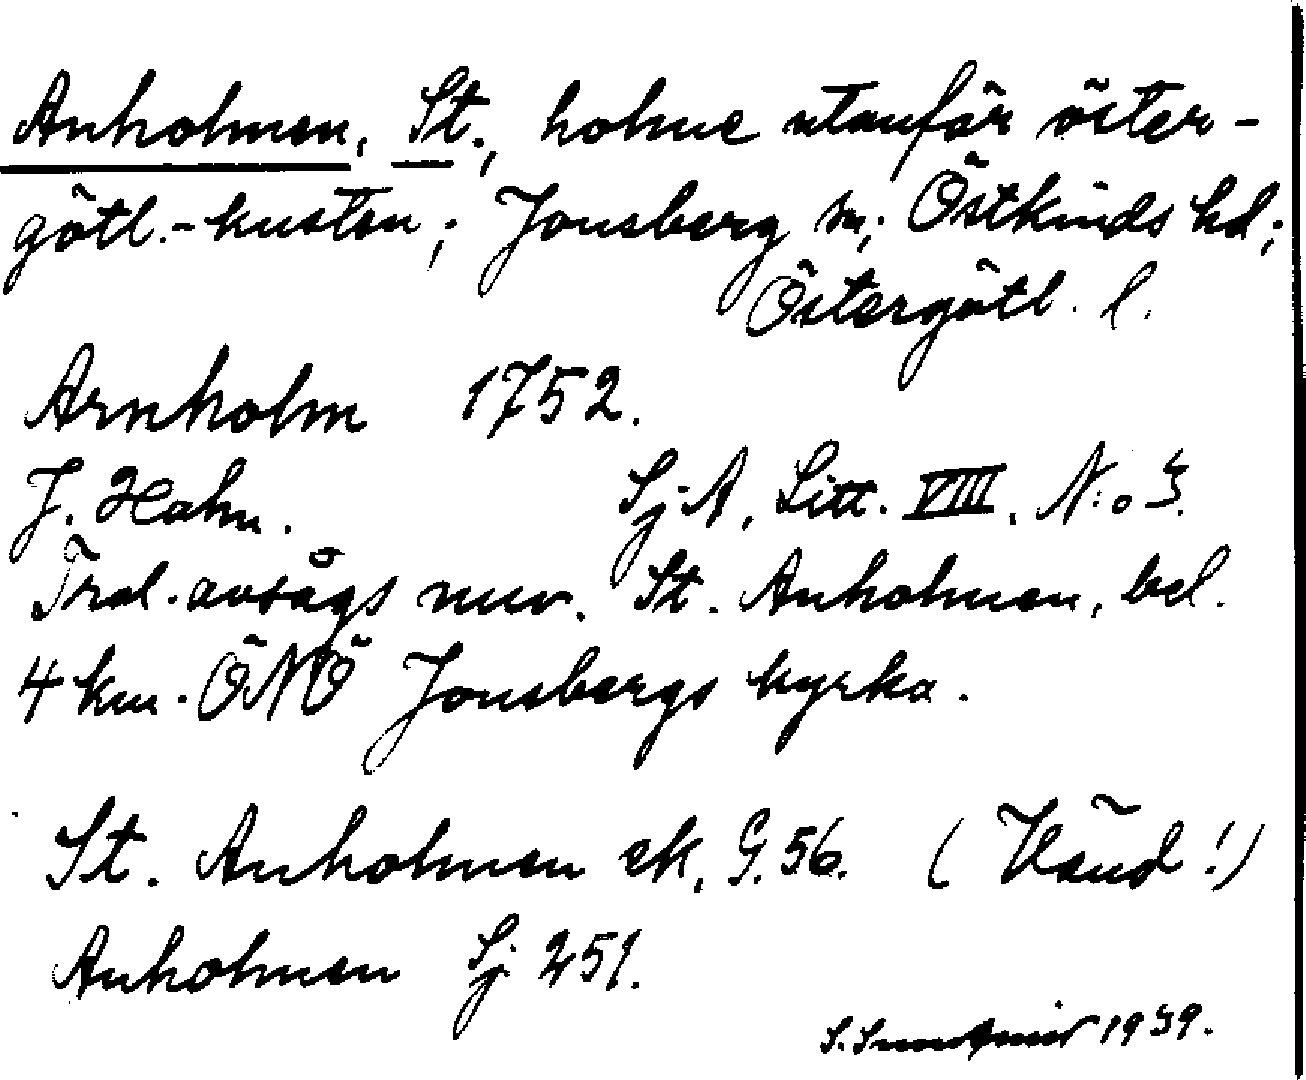 Anholmen, St., holme utanför öster-
götl.-kusten; Jonsberg sn; Östkinds hd;
Östergötl. l.
Arnholm 1752.
J. Hahn. SjA, Litt. VIII, N:o 3.
Trol. avsågs nuv. St. Anholmen, bel.
4 km. ÖNÖ Jonsbergs kyrka.
St. Anholmen ek. G. 56. (Vänd!)
Anholmen Sj 251.
S. 1939.